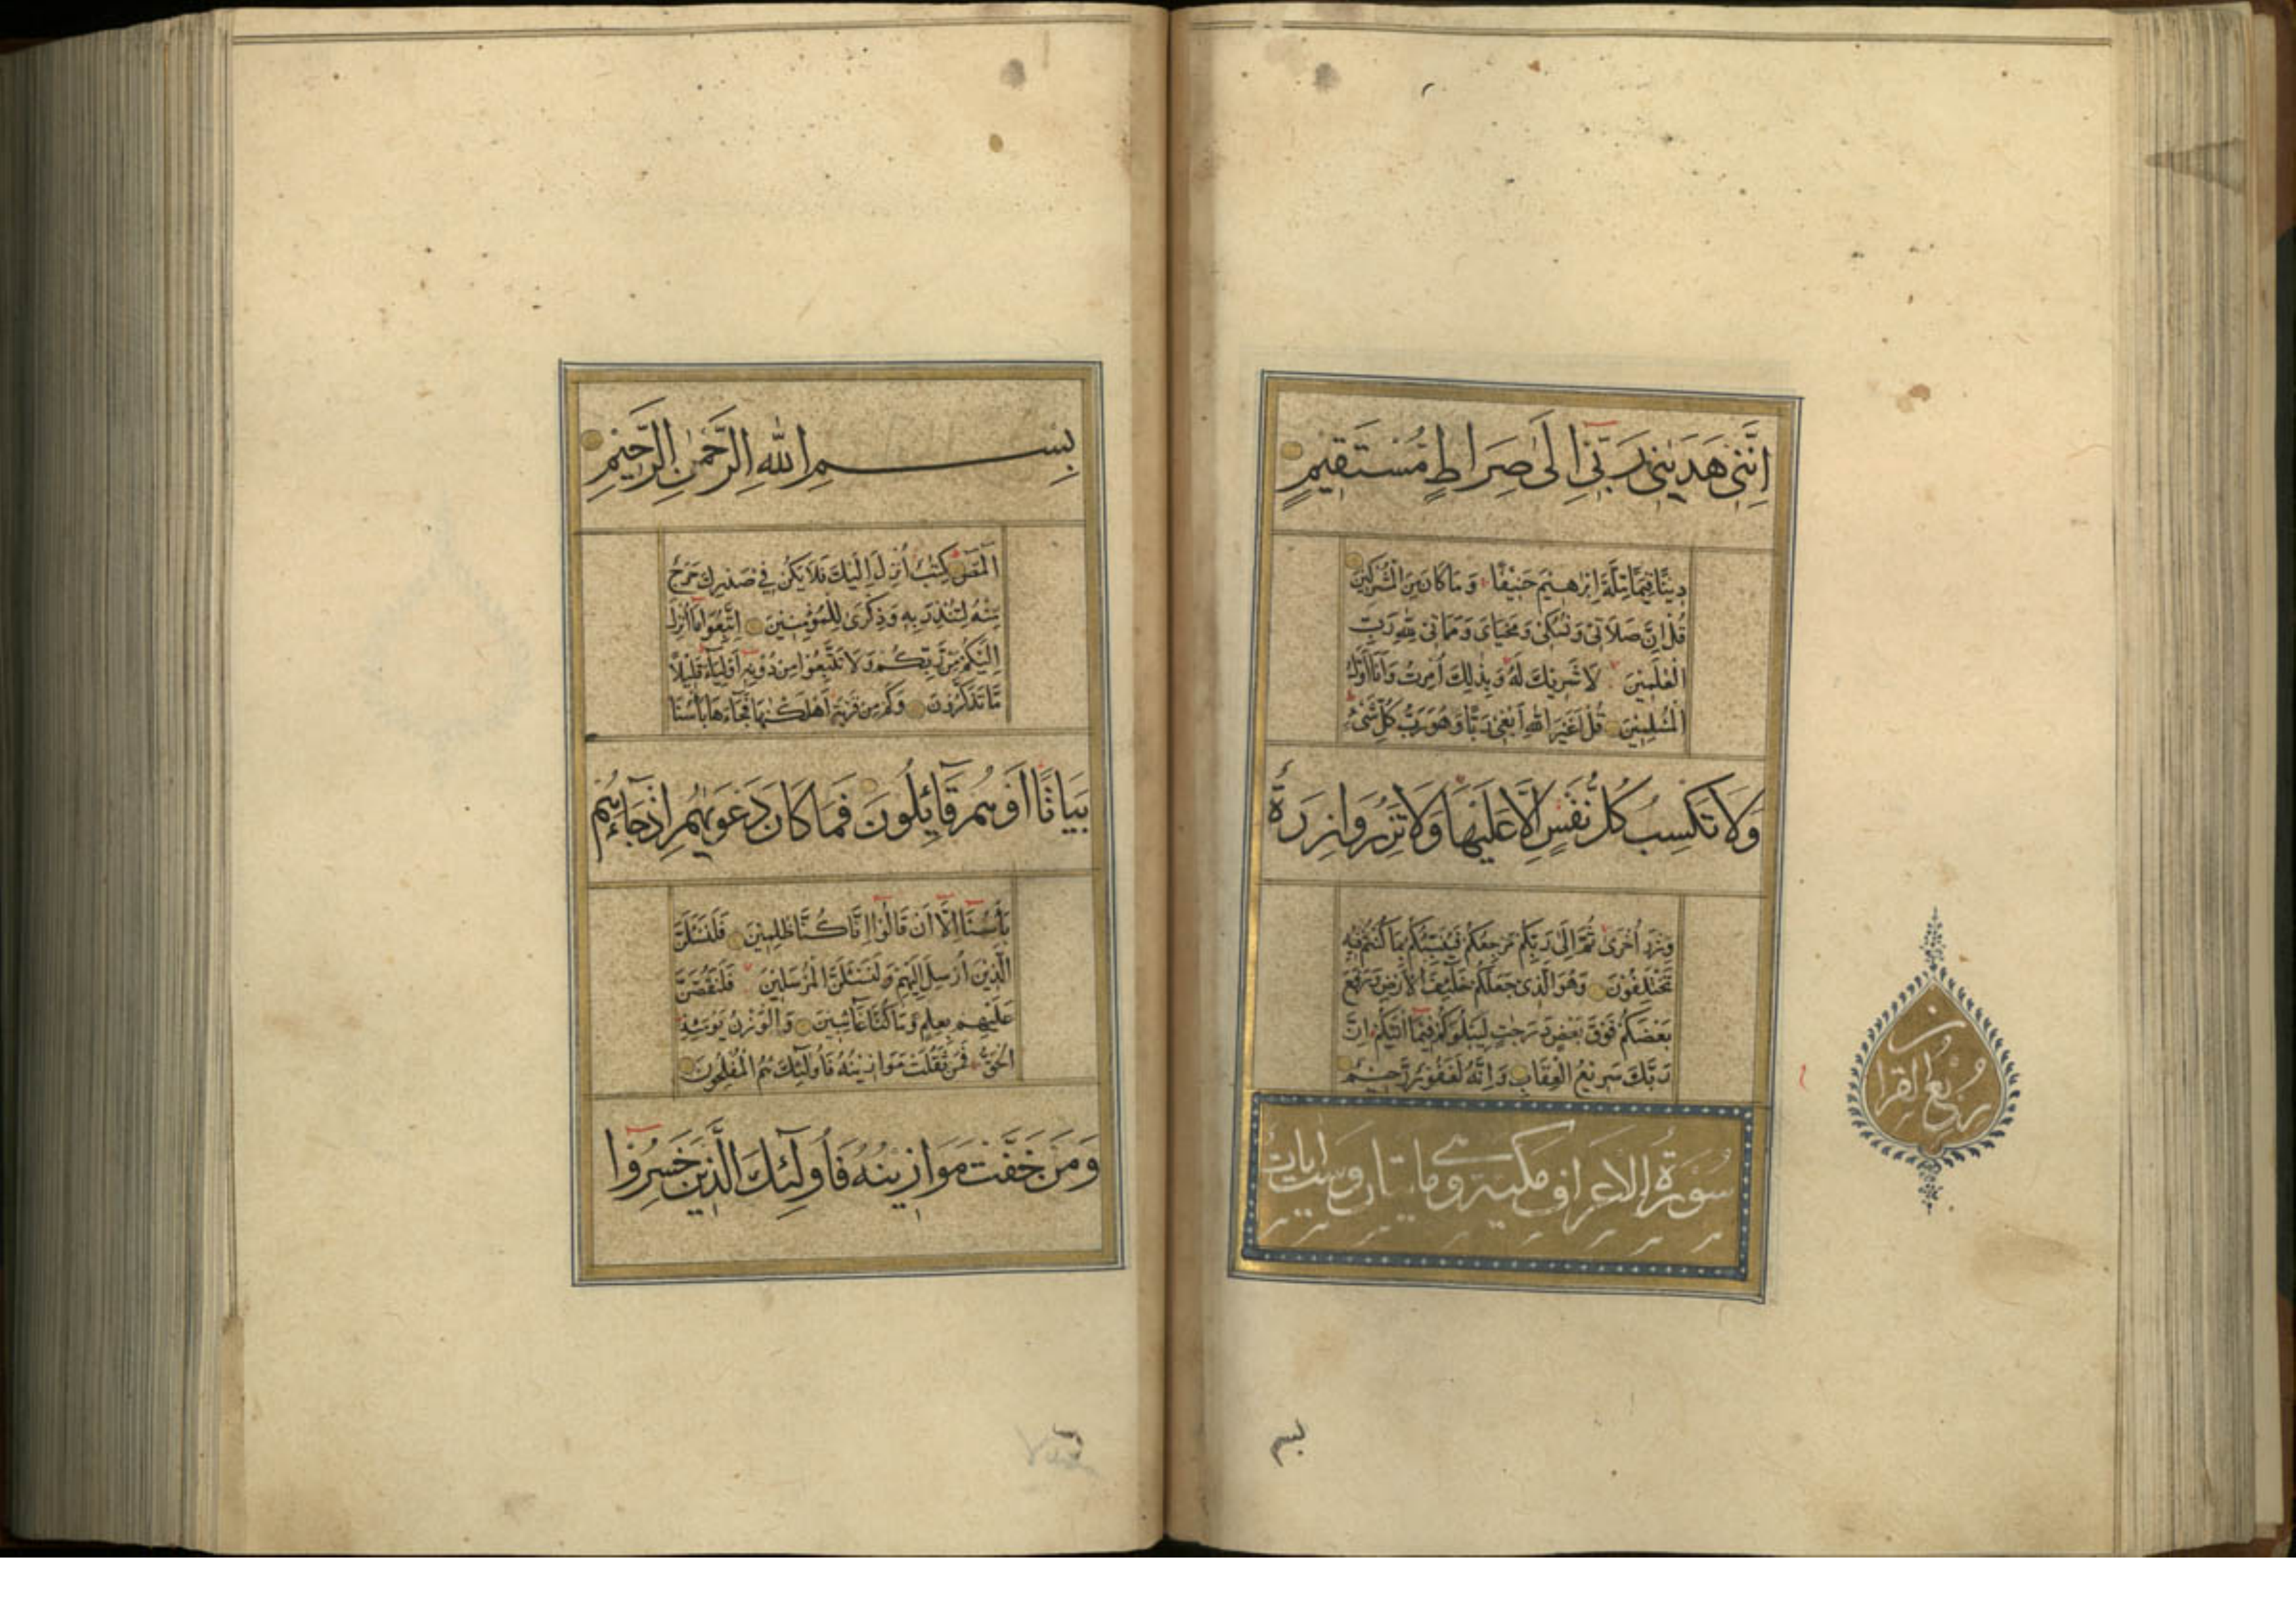 اِنَّنِي هَدٰينِي رَبِّي اِلٰى صِرَاطٍ مُسْتَقِيمٍ
دِينًا قِيَمًا مِلَّةَ اِبْرٰهِيمَ حَنِيفًا وَمَا كَانَ مِنَ الْمُشْرِكِينَ
قُلْ اِنَّ صَلَاتِي وَنُسُكِي وَمَحْيَايَ وَمَمَاتِي لِلّٰهِ رَبِّ
الْعٰلَمِينَ لَا شَرِيكَ لَهُ وَبِذٰلِكَ اُمِرْتُ وَاَنَا اَوَّلُ
الْمُسْلِمِينَ قُلْ اَغَيْرَ اللهِ اَبْغِي رَبًّا وَهُوَ رَبُّ كُلِّ شَيْءٍ
وَلَا تَكْسِبُ كُلُّ نَفْسٍ اِلَّا عَلَيْهَا وَلَا تَزِرُ وَازِرَةٌ
وِزْرَ اُخْرٰى ثُمَّ اِلٰى رَبِّكُمْ مَرْجِعُكُمْ فَيُنَبِّئُكُمْ بِمَا كُنْتُمْ فِيهِ
تَخْتَلِفُونَ وَهُوَ الَّذِي جَعَلَكُمْ خَلٰٓئِفَ الْاَرْضِ وَرَفَعَ
بَعْضَكُمْ فَوْقَ بَعْضٍ دَرَجٰتٍ لِيَبْلُوَكُمْ فِي مَا اٰتٰيكُمْ اِنَّ
رَبَّكَ سَرِيعُ الْعِقَابِ وَاِنَّهُ لَغَفُورٌ رَحِيمٌ
سورة الاعراف مكية وهي مايتان وست ايات
ربع القران
بسم
بِسْمِ اللهِ الرَّحْمٰنِ الرَّحِيمِ
الٓمٓصٓ كِتٰبٌ اُنْزِلَ اِلَيْكَ فَلَا يَكُنْ فِي صَدْرِكَ حَرَجٌ
مِنْهُ لِتُنْذِرَ بِهِ وَذِكْرٰى لِلْمُؤْمِنِينَ اِتَّبِعُوا مَا اُنْزِلَ
اِلَيْكُمْ مِنْ رَبِّكُمْ وَلَا تَتَّبِعُوا مِنْ دُونِهِ اَوْلِيَاءَ قَلِيلًا
مَا تَذَكَّرُونَ وَكَمْ مِنْ قَرْيَةٍ اَهْلَكْنٰهَا فَجَاءَهَا بَأْسُنَا
بَيَاتًا اَوْ هُمْ قَائِلُونَ فَمَا كَانَ دَعْوٰيهُمْ اِذْ جَاءَهُمْ
بَأْسُنَا اِلَّا اَنْ قَالُوا اِنَّا كُنَّا ظٰلِمِينَ فَلَنَسْئَلَنَّ
الَّذِينَ اُرْسِلَ اِلَيْهِمْ وَلَنَسْئَلَنَّ الْمُرْسَلِينَ فَلَنَقُصَّنَّ
عَلَيْهِمْ بِعِلْمٍ وَمَا كُنَّا غَائِبِينَ وَالْوَزْنُ يَوْمَئِذٍ
الْحَقُّ فَمَنْ ثَقُلَتْ مَوَازِينُهُ فَاُولٰئِكَ هُمُ الْمُفْلِحُونَ
وَمَنْ خَفَّتْ مَوَازِينُهُ فَاُولٰئِكَ الَّذِينَ خَسِرُوا